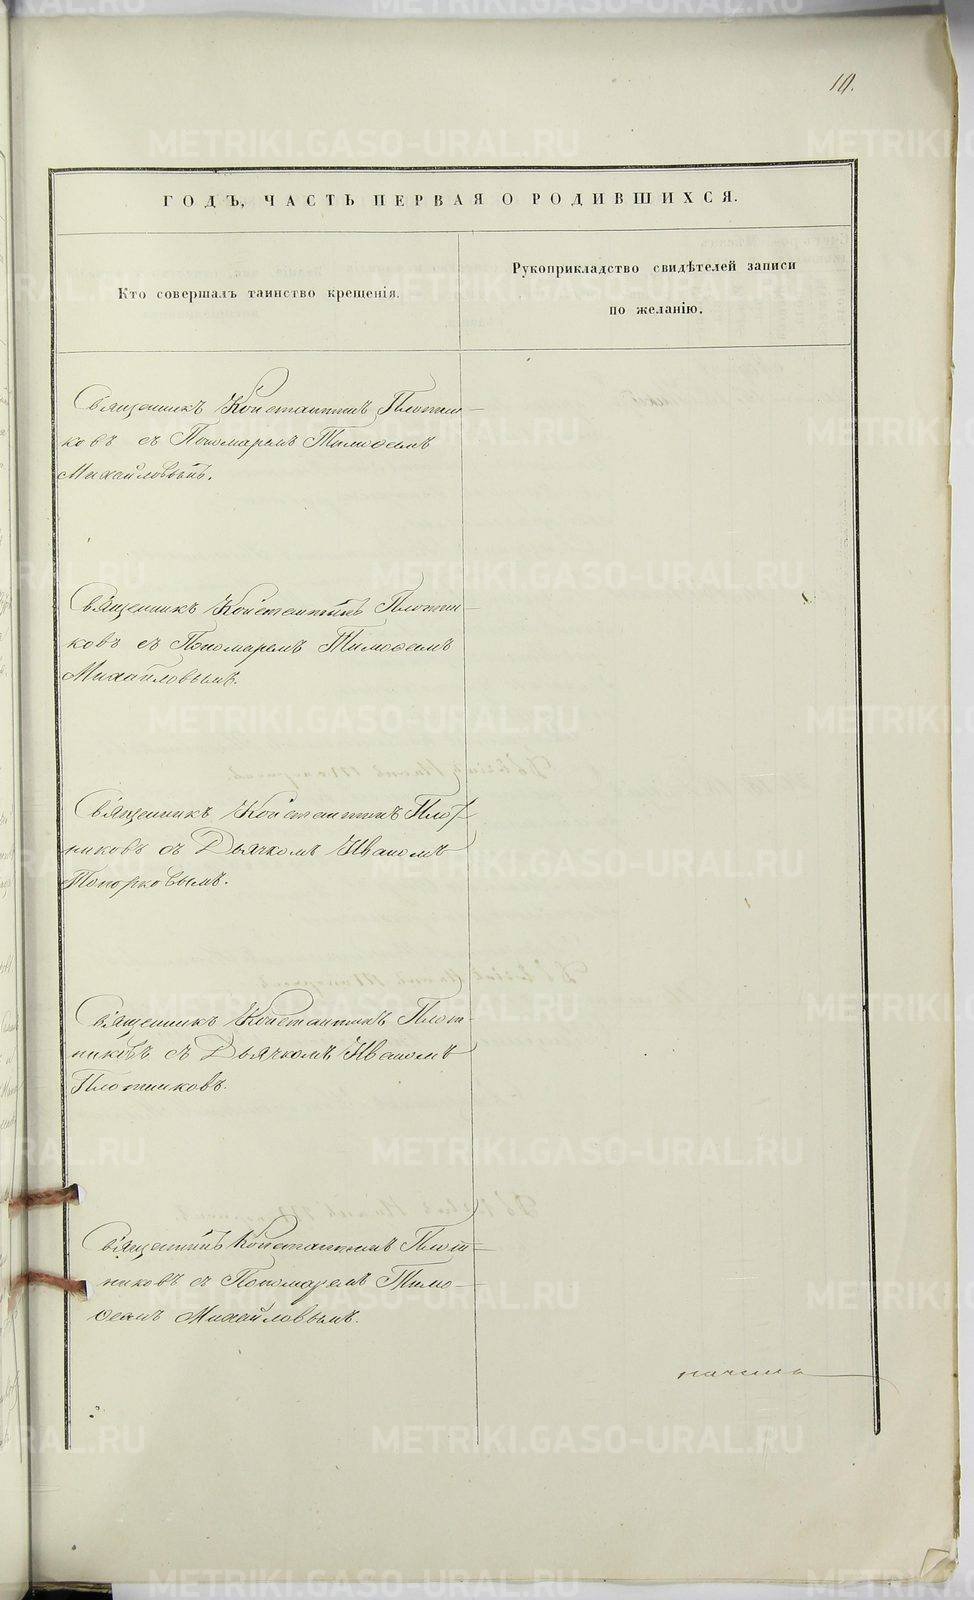 10.
ГОДЪ, ЧАСТЬ ПЕРВАЯ О РОДИВШИХСЯ.
Кто совершалъ таинство крещенія.
Рукоприкладство свидѣтелей записи
по желанію.
Священникъ Константинъ Плотни-
ковъ съ Пономаремъ Тимоѳеемъ
Михайловымъ.
Священникъ Константинъ Плотни-
ковъ съ Пономаремъ Тимоѳеемъ
Михайловымъ.
Священникъ Константинъ Плот-
никовъ съ Дьячкомъ Иваномъ
Топорковымъ.
Священникъ Константинъ Плот-
никовъ съ Дьячкомъ Иваномъ
Плотниковъ.
Священникъ Константинъ Плот-
никовъ съ Пономаремъ Тимо-
ѳеемъ Михайловымъ.
METRIKI.GASO-URAL.RU